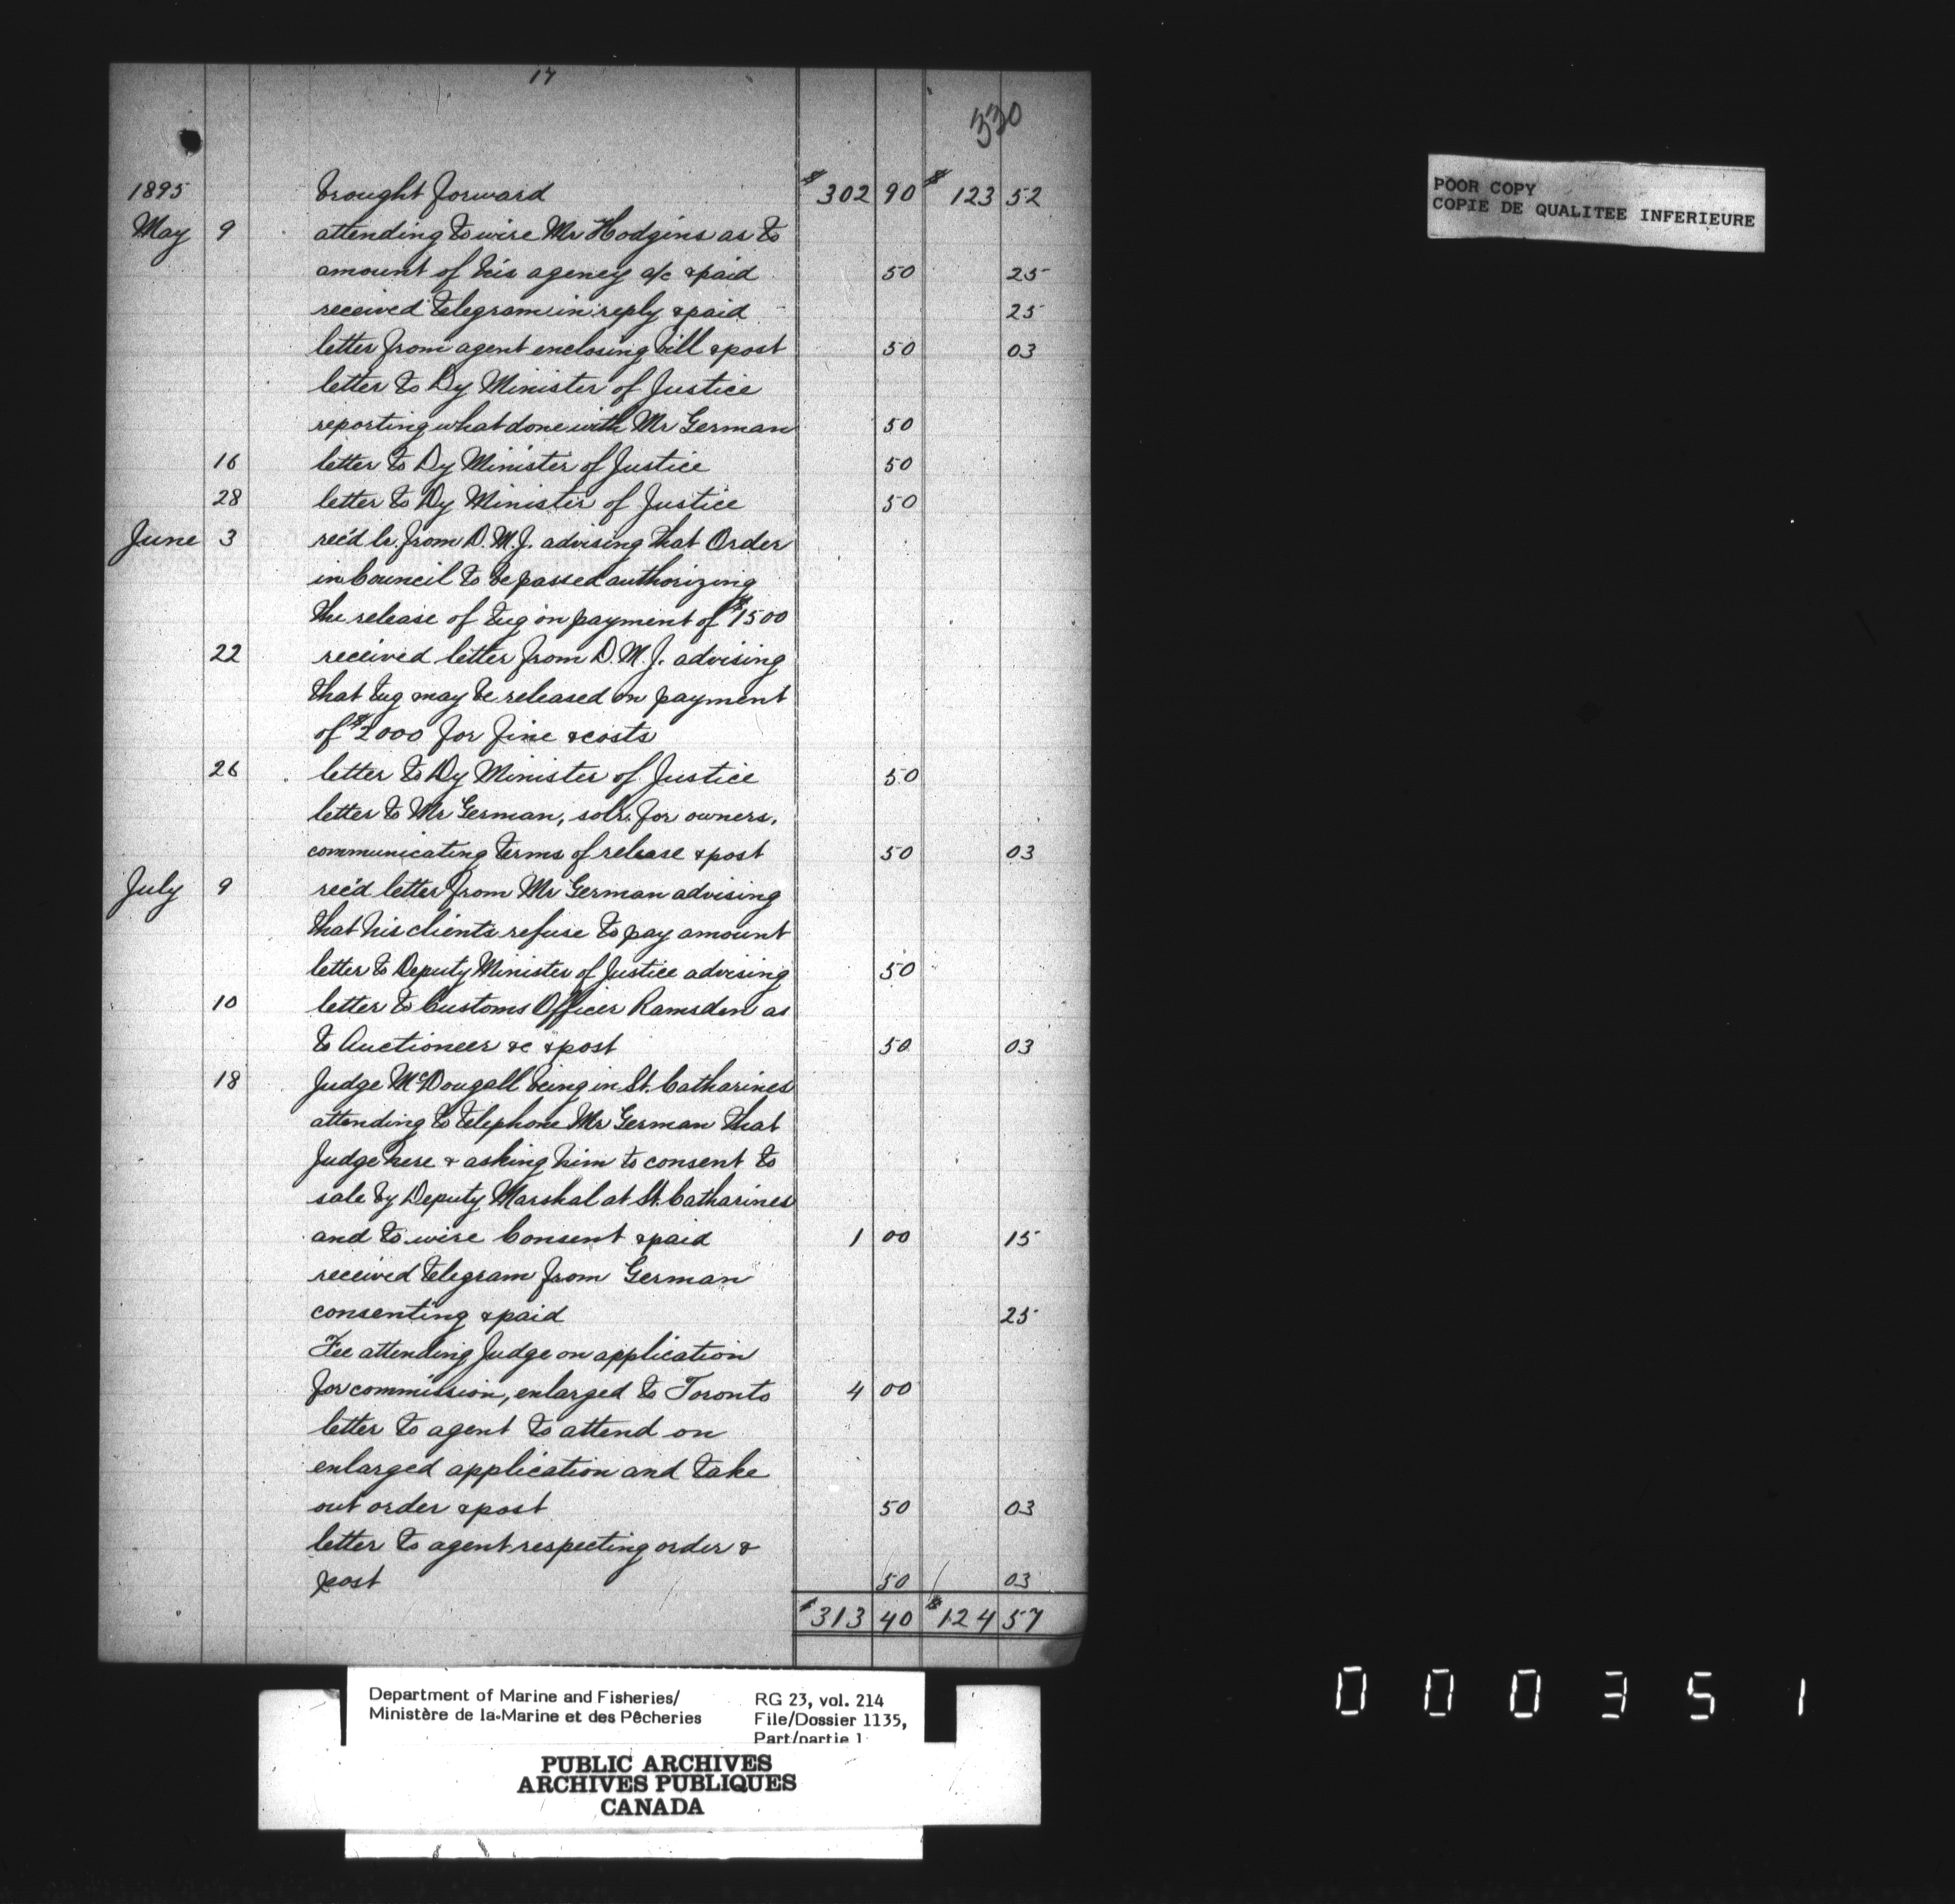 17
330
1895 brought forward $302 90 $123 52
May 9 attending to wire Mr Hodgins as to
amount of his agency a/c & paid 50 25
received telegram in reply & paid 25
letter from agent enclosing bill & post 50 03
letter to Dy Minister of Justice
reporting what done with Mr German 50
16 letter to Dy Minister of Justice 50
28 letter to Dy Minister of Justice 50
June 3 rec'd lr. from D.M.J. advising that Order
in Council to be passed authorizing
the release of tug on payment of $1500
22 received letter from D.M.J. advising
that tug may be released on payment
of $2000 for fine & costs
26 letter to Dy Minister of Justice 50
letter to Mr German, solr. for owners,
communicating terms of release & post 50 03
July 9 rec'd letter from Mr German advising
that his clients refuse to pay amount
letter to Deputy Minister of Justice advising 50
10 letter to Customs Officer Ramsden as
to Auctioneer &c & post 50 03
18 Judge McDougall being in St. Catharines
attending to telephone Mr German that
Judge here & asking him to consent to
sale by Deputy Marshal at St. Catharines
and to wire Consent & paid 1 00 15
received telegram from German
consenting & paid 25
Fee attending Judge on application
for commission, enlarged to Toronto 4 00
letter to agent to attend on
enlarged application and take
out order & post 50 03
letter to agent respecting order &
post 50 03
$313 40 $124 57
POOR COPY
COPIE DE QUALITEE INFERIEURE
Department of Marine and Fisheries/
Ministère de la Marine et des Pêcheries
RG 23, vol. 214
File/Dossier 1135,
Part/partie 1
PUBLIC ARCHIVES
ARCHIVES PUBLIQUES
CANADA
000351